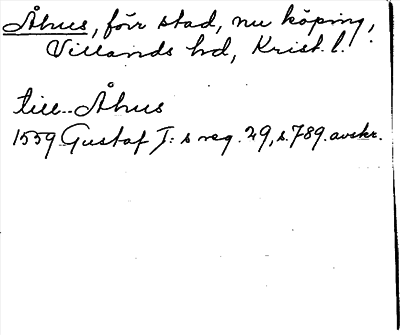 Åhus, förr stad, nu köping,
Villands hd, Krist. l.
till Åhus
1559 Gustaf I: s reg. 29, s. 789. avskr.